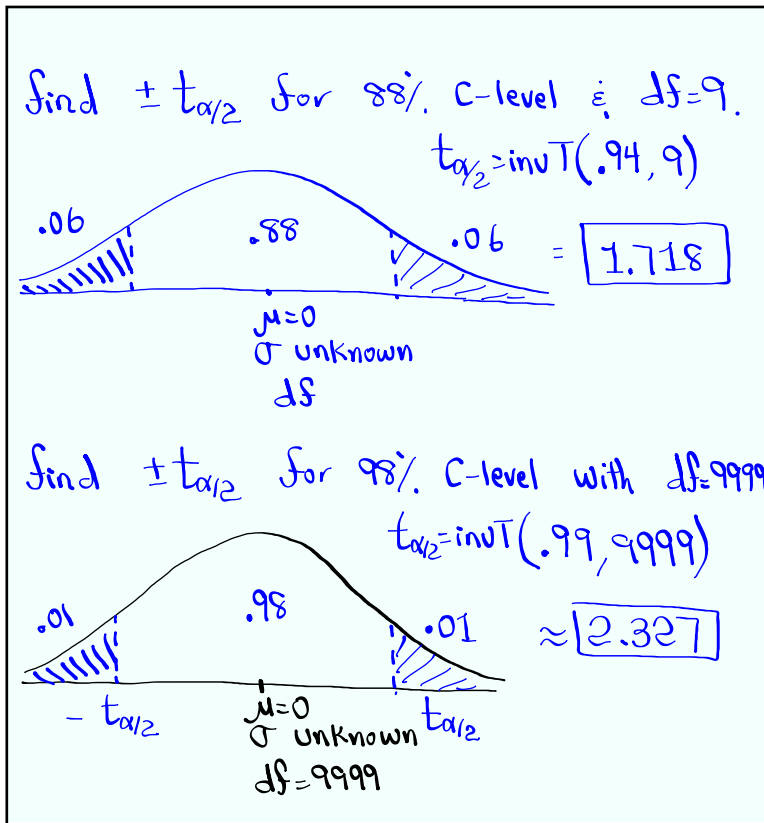 find ± tα/2 for 88% C-level & df=9.
tα/2=invT(.94, 9)
.06 .88 .06 = 1.718
μ=0
σ unknown
df
find ±tα/2 for 98% C-level with df=9999
tα/2=invT(.99, 9999)
.01 .98 .01 ≈ 2.327
- tα/2 μ=0 tα/2
σ unknown
df=9999